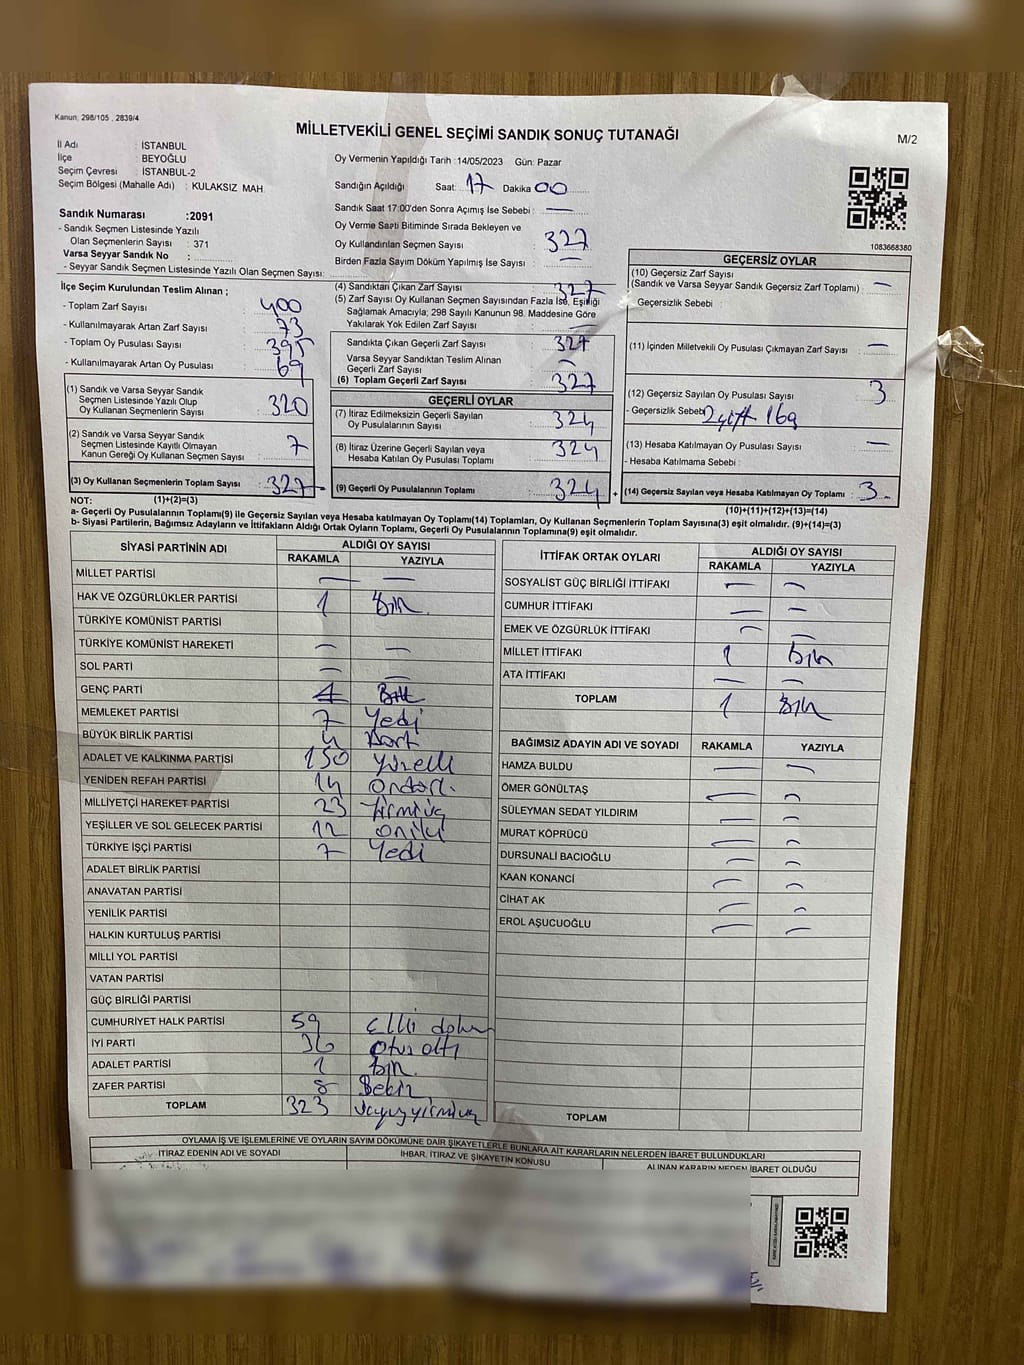 Kanun, 298/105 , 2839/4
MİLLETVEKİLİ GENEL SEÇİMİ SANDIK SONUÇ TUTANAĞI
M/2
İl Adı : İSTANBUL
İlçe : BEYOĞLU
Seçim Çevresi : İSTANBUL-2
Seçim Bölgesi (Mahalle Adı) : KULAKSIZ MAH.
Sandık Numarası :2091
- Sandık Seçmen Listesinde Yazılı
Olan Seçmenlerin Sayısı : 371
Varsa Seyyar Sandık No :
- Seyyar Sandık Seçmen Listesinde Yazılı Olan Seçmen Sayısı:
Oy Vermenin Yapıldığı Tarih :14/05/2023 Gün: Pazar
Sandığın Açıldığı Saat: 17 Dakika 00
Sandık Saat 17:00'den Sonra Açımış İse Sebebi : —
Oy Verme Saati Bitiminde Sırada Bekleyen ve
Oy Kullandırılan Seçmen Sayısı : 327
Birden Fazla Sayım Döküm Yapılmış İse Sayısı : —
1083668380
İlçe Seçim Kurulundan Teslim Alınan ;
- Toplam Zarf Sayısı : 400
- Kullanılmayarak Artan Zarf Sayısı : 73
- Toplam Oy Pusulası Sayısı : 395
- Kullanılmayarak Artan Oy Pusulası : 69
(1) Sandık ve Varsa Seyyar Sandık
Seçmen Listesinde Yazılı Olup
Oy Kullanan Seçmenlerin Sayısı : 320
(2) Sandık ve Varsa Seyyar Sandık
Seçmen Listesinde Kayıtlı Olmayan
Kanun Gereği Oy Kullanan Seçmen Sayısı : 7
(3) Oy Kullanan Seçmenlerin Toplam Sayısı : 327
(4) Sandıktan Çıkan Zarf Sayısı : 327
(5) Zarf Sayısı Oy Kullanan Seçmen Sayısından Fazla İse, Eşitliği
Sağlamak Amacıyla; 298 Sayılı Kanunun 98. Maddesine Göre
Yakılarak Yok Edilen Zarf Sayısı : —
Sandıkta Çıkan Geçerli Zarf Sayısı : 327
Varsa Seyyar Sandıktan Teslim Alınan
Geçerli Zarf Sayısı : —
(6) Toplam Geçerli Zarf Sayısı : 327
GEÇERLİ OYLAR
(7) İtiraz Edilmeksizin Geçerli Sayılan
Oy Pusulalarının Sayısı : 324
(8) İtiraz Üzerine Geçerli Sayılan veya
Hesaba Katılan Oy Pusulası Toplamı : 324
(9) Geçerli Oy Pusulalarının Toplamı : 324 +
GEÇERSİZ OYLAR
(10) Geçersiz Zarf Sayısı
(Sandık ve Varsa Seyyar Sandık Geçersiz Zarf Toplamı) : —
- Geçersizlik Sebebi :
(11) İçinden Milletvekili Oy Pusulası Çıkmayan Zarf Sayısı : —
(12) Geçersiz Sayılan Oy Pusulası Sayısı : 3
- Geçersizlik Sebebi
(13) Hesaba Katılmayan Oy Pusulası Sayısı : —
- Hesaba Katılmama Sebebi :
(14) Geçersiz Sayılan veya Hesaba Katılmayan Oy Toplamı : 3
NOT: (1)+(2)=(3)
(10)+(11)+(12)+(13)=(14)
a- Geçerli Oy Pusulalarının Toplamı(9) ile Geçersiz Sayılan veya Hesaba katılmayan Oy Toplamı(14) Toplamları, Oy Kullanan Seçmenlerin Toplam Sayısına(3) eşit olmalıdır. (9)+(14)=(3)
b- Siyasi Partilerin, Bağımsız Adayların ve İttifakların Aldığı Ortak Oyların Toplamı, Geçerli Oy Pusulalarının Toplamına(9) eşit olmalıdır.
SİYASİ PARTİNİN ADI ALDIĞI OY SAYISI
RAKAMLA YAZIYLA
MİLLET PARTİSİ — —
HAK VE ÖZGÜRLÜKLER PARTİSİ 1 Bir
TÜRKİYE KOMÜNİST PARTİSİ
TÜRKİYE KOMÜNİST HAREKETİ — —
SOL PARTİ — —
GENÇ PARTİ
MEMLEKET PARTİSİ 7 Yedi
BÜYÜK BİRLİK PARTİSİ 4 Dört
ADALET VE KALKINMA PARTİSİ 150 Yüzelli
YENİDEN REFAH PARTİSİ 14 Ondört.
MİLLİYETÇİ HAREKET PARTİSİ 23 Yirmiüç
YEŞİLLER VE SOL GELECEK PARTİSİ 12 oniki
TÜRKİYE İŞÇİ PARTİSİ 7 Yedi
ADALET BİRLİK PARTİSİ
ANAVATAN PARTİSİ
YENİLİK PARTİSİ
HALKIN KURTULUŞ PARTİSİ
MİLLİ YOL PARTİSİ
VATAN PARTİSİ
GÜÇ BİRLİĞİ PARTİSİ
CUMHURİYET HALK PARTİSİ 59 Elli dokuz
İYİ PARTİ 36 Otuz altı
ADALET PARTİSİ 1 bir.
ZAFER PARTİSİ 8 Sekiz
TOPLAM 323 üçyüzyirmiüç
İTTİFAK ORTAK OYLARI ALDIĞI OY SAYISI
RAKAMLA YAZIYLA
SOSYALİST GÜÇ BİRLİĞİ İTTİFAKI — —
CUMHUR İTTİFAKI — —
EMEK VE ÖZGÜRLÜK İTTİFAKI — —
MİLLET İTTİFAKI 1 bir
ATA İTTİFAKI — —
TOPLAM 1 Bir
BAĞIMSIZ ADAYIN ADI VE SOYADI RAKAMLA YAZIYLA
HAMZA BULDU — —
ÖMER GÖNÜLTAŞ — —
SÜLEYMAN SEDAT YILDIRIM — —
MURAT KÖPRÜCÜ — —
DURSUNALİ BACIOĞLU — —
KAAN KONANCİ — —
CİHAT AK — —
EROL AŞUCUOĞLU — —
TOPLAM
OYLAMA İŞ VE İŞLEMLERİNE VE OYLARIN SAYIM DÖKÜMÜNE DAİR ŞİKAYETLERLE BUNLARA AİT KARARLARIN NELERDEN İBARET BULUNDUKLARI
İTİRAZ EDENİN ADI VE SOYADI İHBAR, İTİRAZ VE ŞİKAYETİN KONUSU ALINAN KARARIN NEDEN İBARET OLDUĞU